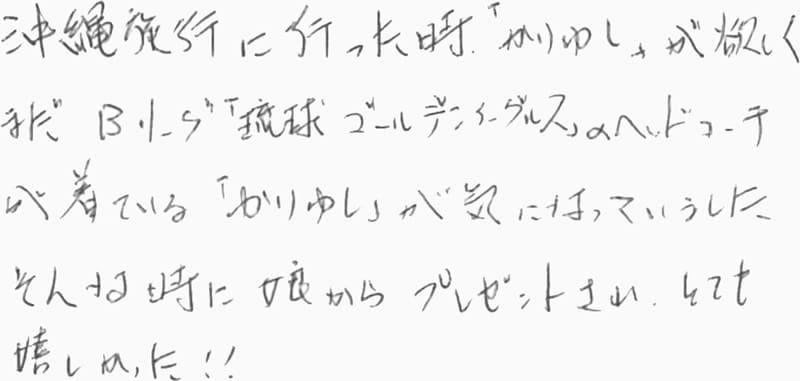 沖縄旅行に行った時、「かりゆし」が欲しく
まだBリーグ「琉球ゴールデンイーグルス」のヘッドコーチ
が着ている「かりゆし」が気になっていました
そんな時に娘からプレゼントされ、とても
嬉しかった!!